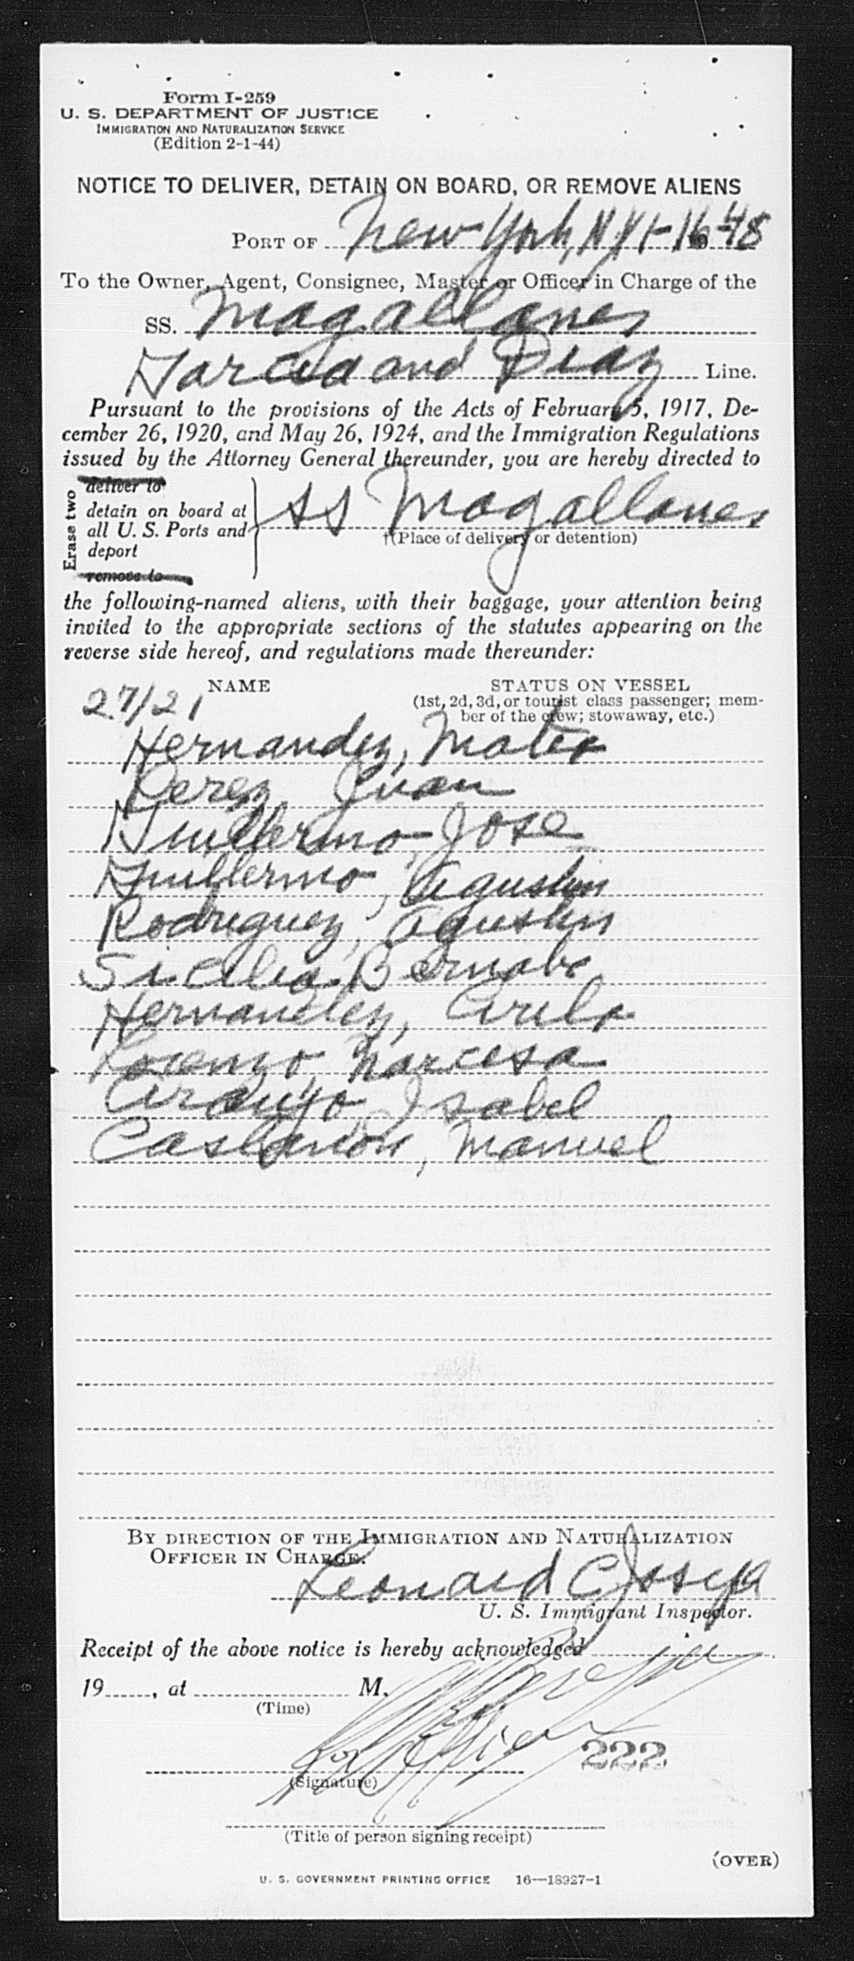 Form I-259
U. S. DEPARTMENT OF JUSTICE
IMMIGRATION AND NATURALIZATION SERVICE
(Edition 2-1-44)
NOTICE TO DELIVER, DETAIN ON BOARD, OR REMOVE ALIENS
PORT OF New York, N Y 1-16-48
To the Owner, Agent, Consignee, Master or Officer in Charge of the
SS. Magallanes
Garcia and Diaz Line.
Pursuant to the provisions of the Acts of February 5, 1917, De-
cember 26, 1920, and May 26, 1924, and the Immigration Regulations
issued by the Attorney General thereunder, you are hereby directed to
Erase two
deliver to
detain on board at
all U. S. Ports and
deport
remove to
SS Magallanes
†(Place of delivery or detention)
the following-named aliens, with their baggage, your attention being
invited to the appropriate sections of the statutes appearing on the
reverse side hereof, and regulations made thereunder:
27/21 NAME STATUS ON VESSEL
(1st, 2d, 3d, or tourist class passenger; mem-
ber of the crew; stowaway, etc.)
Hernandez, Mateo
Perez Juan
Guillermo, Jose
Guillermo, Agustin
Rodriguez, Agustin
Sicilia, Bernabe
Hernandez,
Lorenzo Narcesa
Araujo Isabel
Castanon, Manuel
BY DIRECTION OF THE IMMIGRATION AND NATURALIZATION
OFFICER IN CHARGE.
Leonard C
U. S. Immigrant Inspector.
Receipt of the above notice is hereby acknowledged
19____, at ____ M.
(Time)
222
(Signature)
(Title of person signing receipt)
(OVER)
U. S. GOVERNMENT PRINTING OFFICE 16—18927-1